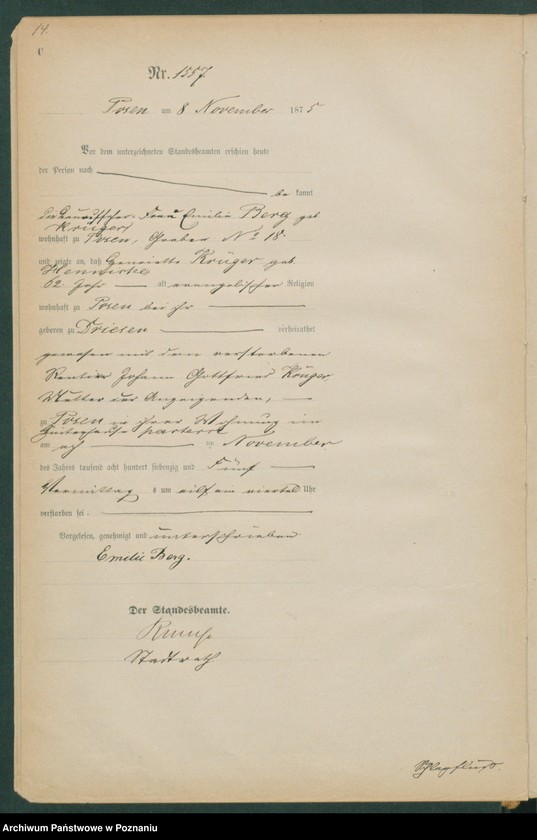 14.
C
Nr. 1557
Posen am 8 November 1875
Vor dem unterzeichneten Standesbeamten erschien heute
der Person nach
be kannt
Frau Emilie Berg geb
Krüger
wohnhaft zu Posen, Graben No 18
und zeigte an, daß Henriette Krüger geb
62 Jahr alt evangelischer Religion
wohnhaft zu Posen bei ihr
geboren zu Driesen verheirathet
gewesen mit dem verstorbenen
Rentier Johann Gottfried Krüger,
Mutter der Anzeigenden,
zu Posen in ihrer Wohnung im
Hinterhause parterre
am acht ten November
des Jahres tausend acht hundert siebenzig und Fünf
Vormittag s um eilf ein viertel Uhr
verstorben sei.
Vorgelesen, genehmigt und unterschrieben
Emilie Berg.
Der Standesbeamte.
Stadtrath
Schlagfluß.
Archiwum Państwowe w Poznaniu